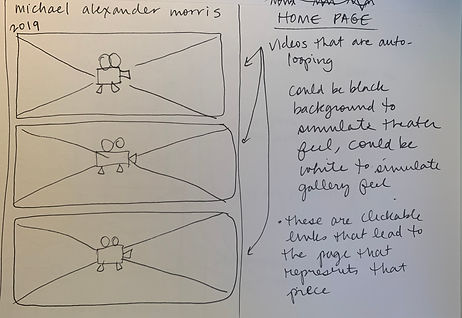 michael alexander morris
2019
HOME PAGE
Videos that are auto-
looping
could be black
background to
simulate theater
feel, could be
white to simulate
gallery feel
• these are clickable
links that lead to
the page that
represents that
piece